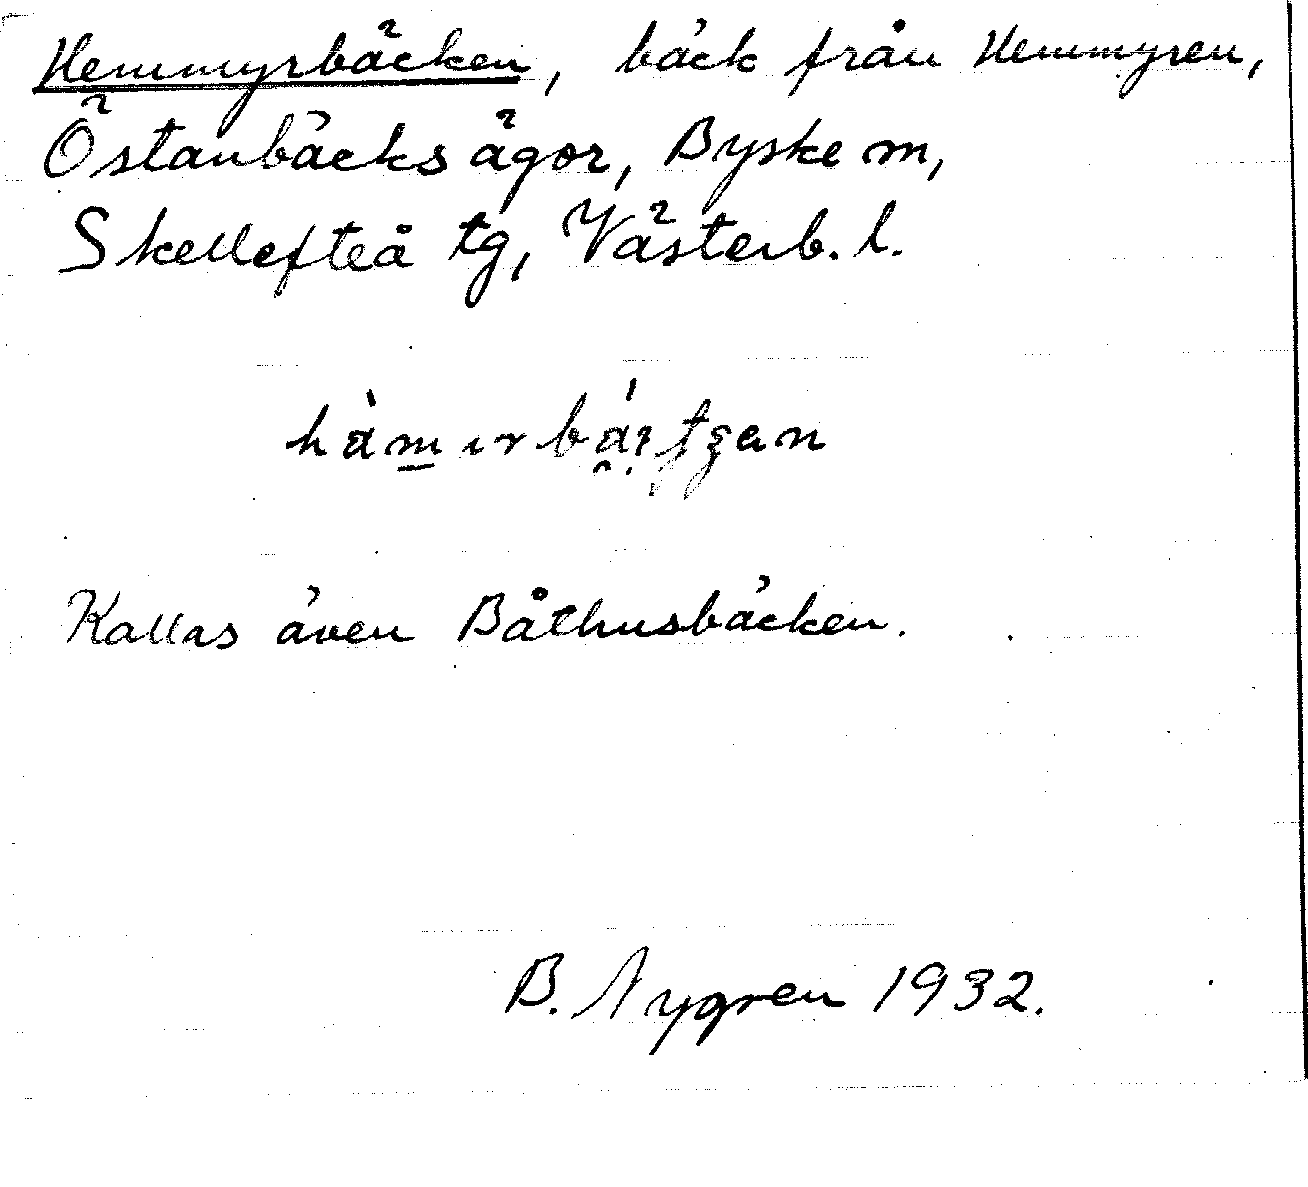 Hemmyrbäcken, bäck från Hemmyren,
Östanbäcks ägor, Byske m,
Skellefteå tg, Västerb. l.
Kallas även Båthusbäcken.
B. Nygren 1932.